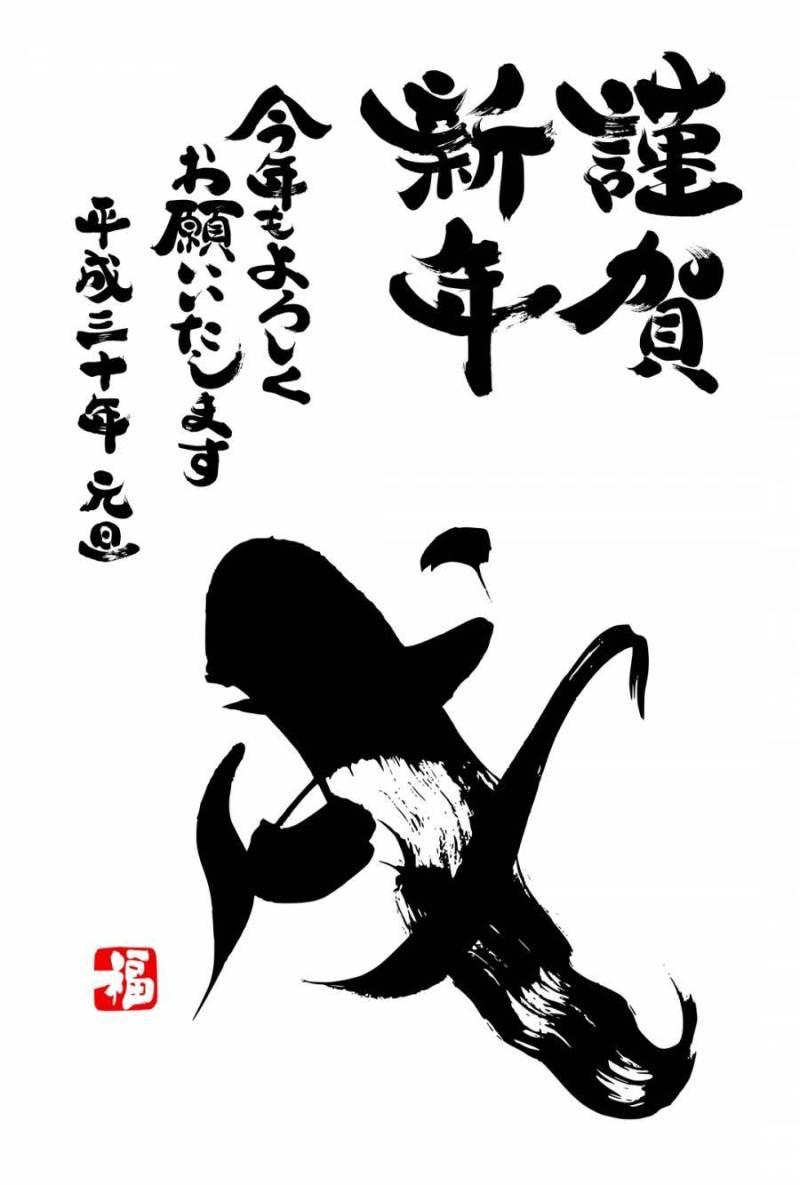 謹賀
新年
今年もよろしく
お願いいたします
平成三十年 元旦
戌
福